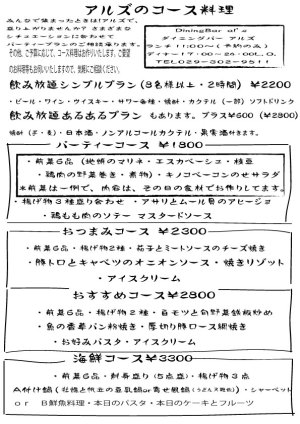 アルズのコース料理
みんなで集まったときはアルズで、
盛り上がりませんか？さまざまな
シチュエーションに合わせて
パーティープランのご相談承ります。
その他、ご予算に応じて、コース料理お作りいたします。ご要望
のお料理等もお作りいたしますので、気軽にご相談ください。
DiningBar al's
ダイニングバー アルズ
ランチ 11:00〜(予約のみ)
ディナー17:00〜26:00L.O.
TEL029-302-9511
飲み放題シンプルプラン(3名様以上・2時間) ¥2200
・ビール・ワイン・ウイスキー・サワー各種・焼酎・カクテル(一部)ソフトドリンク
飲み放題あるあるプラン もあります。プラス¥600 (¥2800)
焼酎(芋・麦)・日本酒・ノンアルコールカクテル・果実酒 付きます。
パーティーコース ¥1800
・前菜6品 (地蛸のマリネ・エスカベーシュ・枝豆
・鶏肉の野菜巻き・煮物)・キノコベーコンのせサラダ
*前菜は一例で、内容は、その日の食材でお作りしてます。
・揚げ物3種盛り合わせ ・アサリとムール貝のアヒージョ
・鶏もも肉のソテー マスタードソース
おつまみコース ¥2300
・前菜6品・揚げ物2種・茄子とミートソースのチーズ焼き
・豚トロとキャベツのオニオンソース・焼きリゾット
・アイスクリーム
おすすめコース¥2800
・前菜6品・揚げ物2種・白モツと旬野菜鉄板炒め
・魚の香草パン粉焼き・厚切り豚ロース網焼き
・お好みパスタ・アイスクリーム
海鮮コース¥3300
・前菜6品・刺身盛り(5点盛)・揚げ物3点
or B鮮魚料理・本日のパスタ・本日のケーキとフルーツ